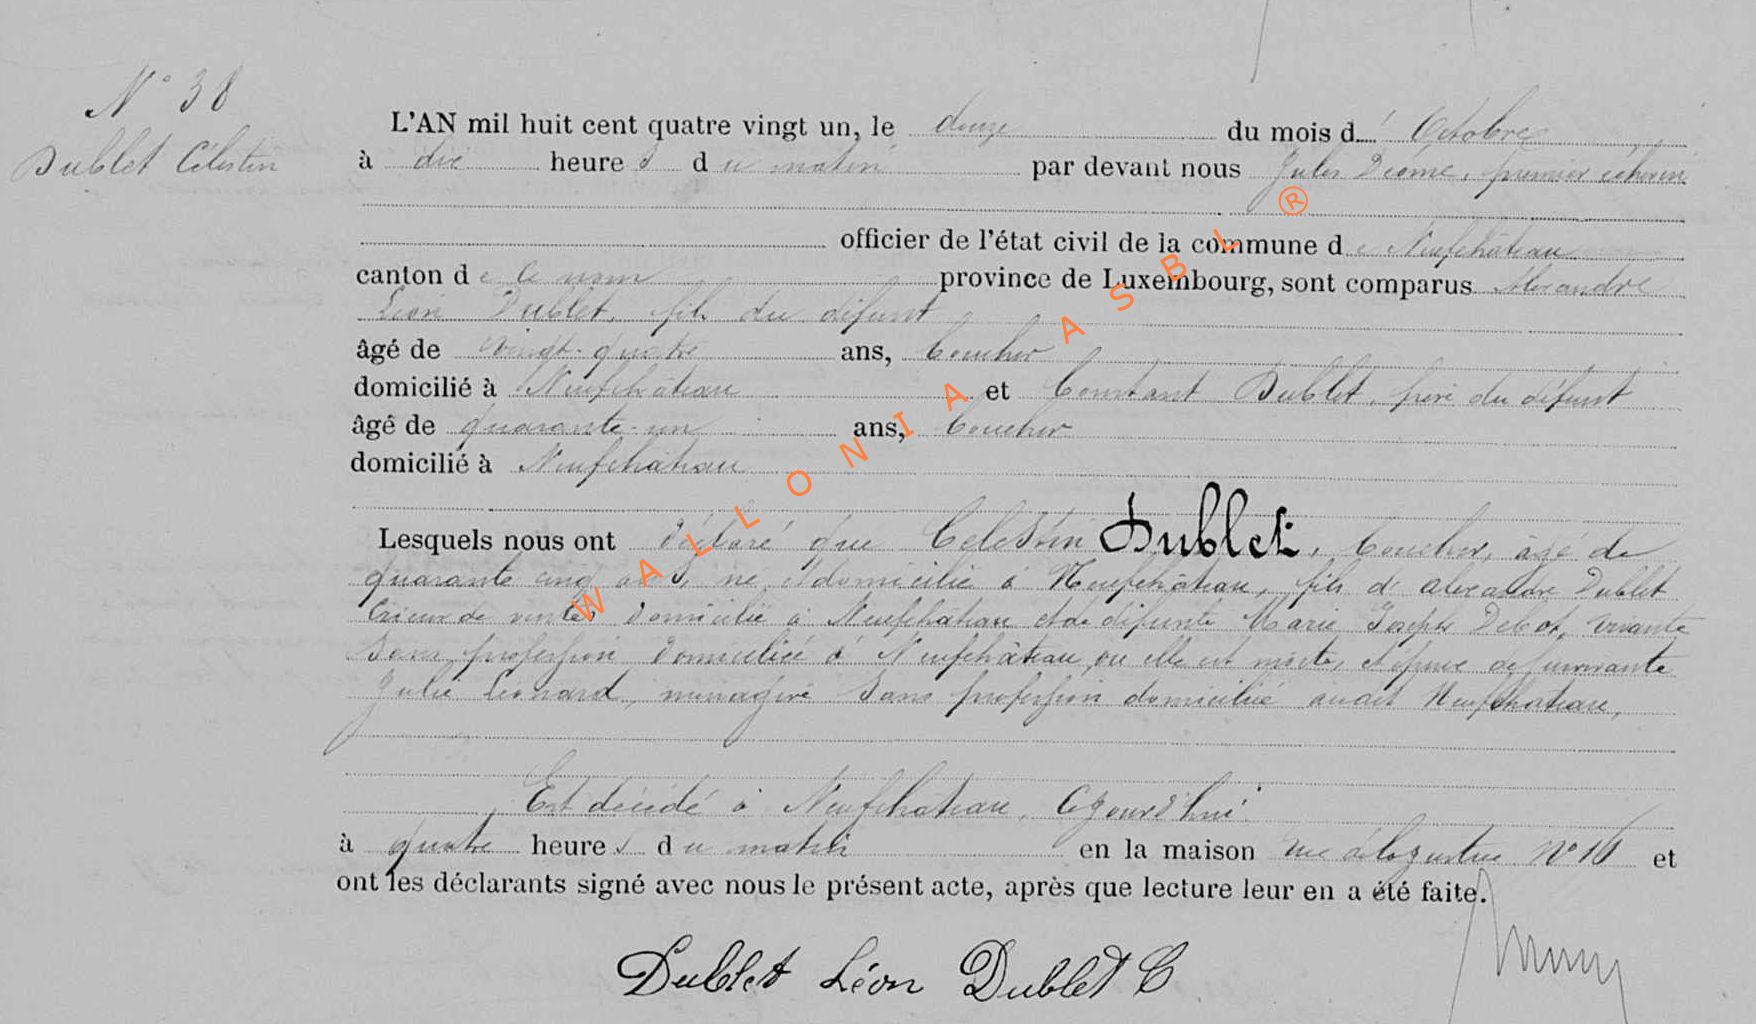 N° 38
Dublet Célestin
L'AN mil huit cent quatre vingt un, le douze du mois d' Octobre
à dix heure s du matin par devant nous Jules premier échevin
officier de l'état civil de la commune de Neufchâteau
canton de ce nom province de Luxembourg, sont comparus Alexandre
Léon Dublet, fils du défunt
âgé de vingt-quatre ans, Boucher
domicilié à Neufchâteau et Constant Dublet, frère du défunt
âgé de quarante-un ans, Boucher
domicilié à Neufchâteau
Lesquels nous ont déclaré que Celestin Dublet, boucher, âgé de
quarante cinq ans, né et domicilié à Neufchâteau, fils de Alexandre Dublet
Crieur de ventes domicilié à Neufchâteau et de défunte Marie Joseph vivante
Sans profession domiciliée à Neufchâteau, ou elle est morte, époux de survivante
Julie Léonard, menagère Sans profession domiciliée audit Neufchateau,
Est décédé à Neufchâteau, Cejourd'hui
à quatre heure s du matin en la maison rue N° 16 et
ont les déclarants signé avec nous le présent acte, après que lecture leur en a été faite.
Dublet Léon Dublet C
WALLONIA ASBL ®